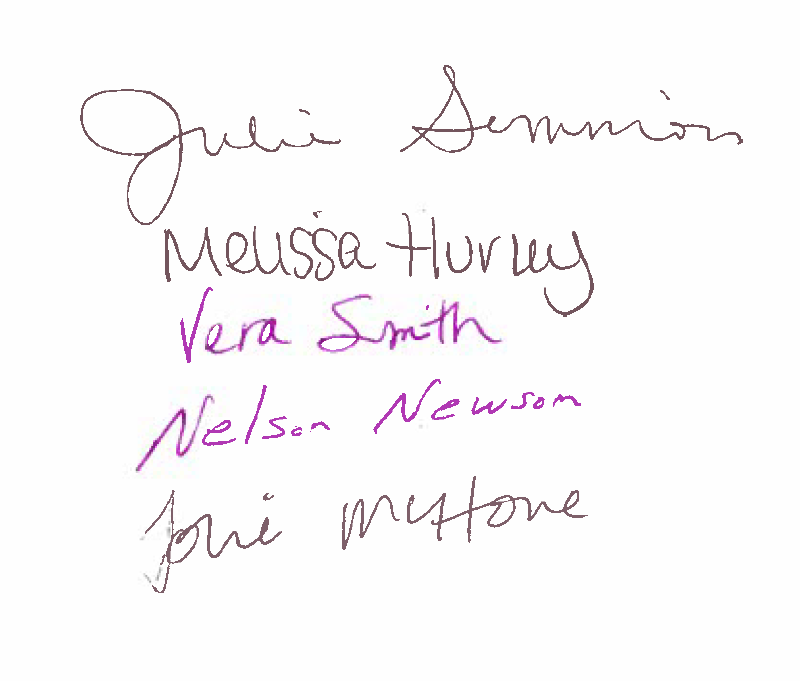 Julie Simmions
Melissa Hurley
Vera Smith
Nelson Newsom
McHone